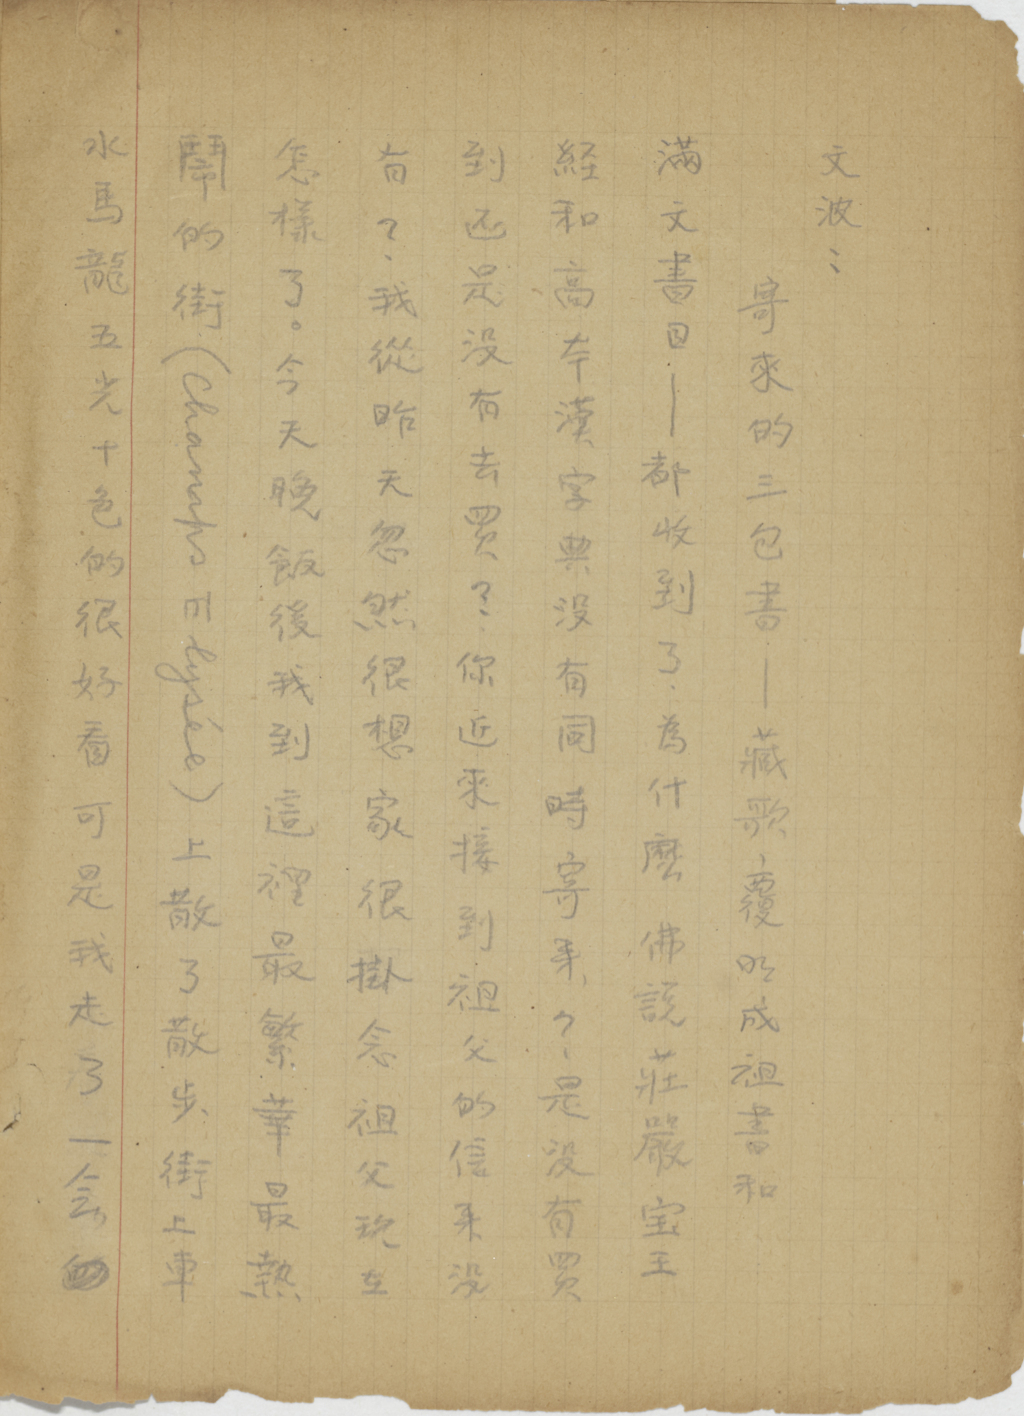 文波：
寄來的三包書——藏歌，覆明成祖書和
滿文書目——都收到了，為什麼佛說莊嚴宝王
経和高本漢字典没有同時寄来，？是没有買
到还是没有去買？你近來接到祖父的信来没
有？我從昨天忽然很想家很掛念祖父現在
怎樣了。今天晚飯後我到這裡最繁華最熱
鬧的街(Champs Élysée)上散了散步，街上車
水馬龍五光十色的很好看可是我走了一会，